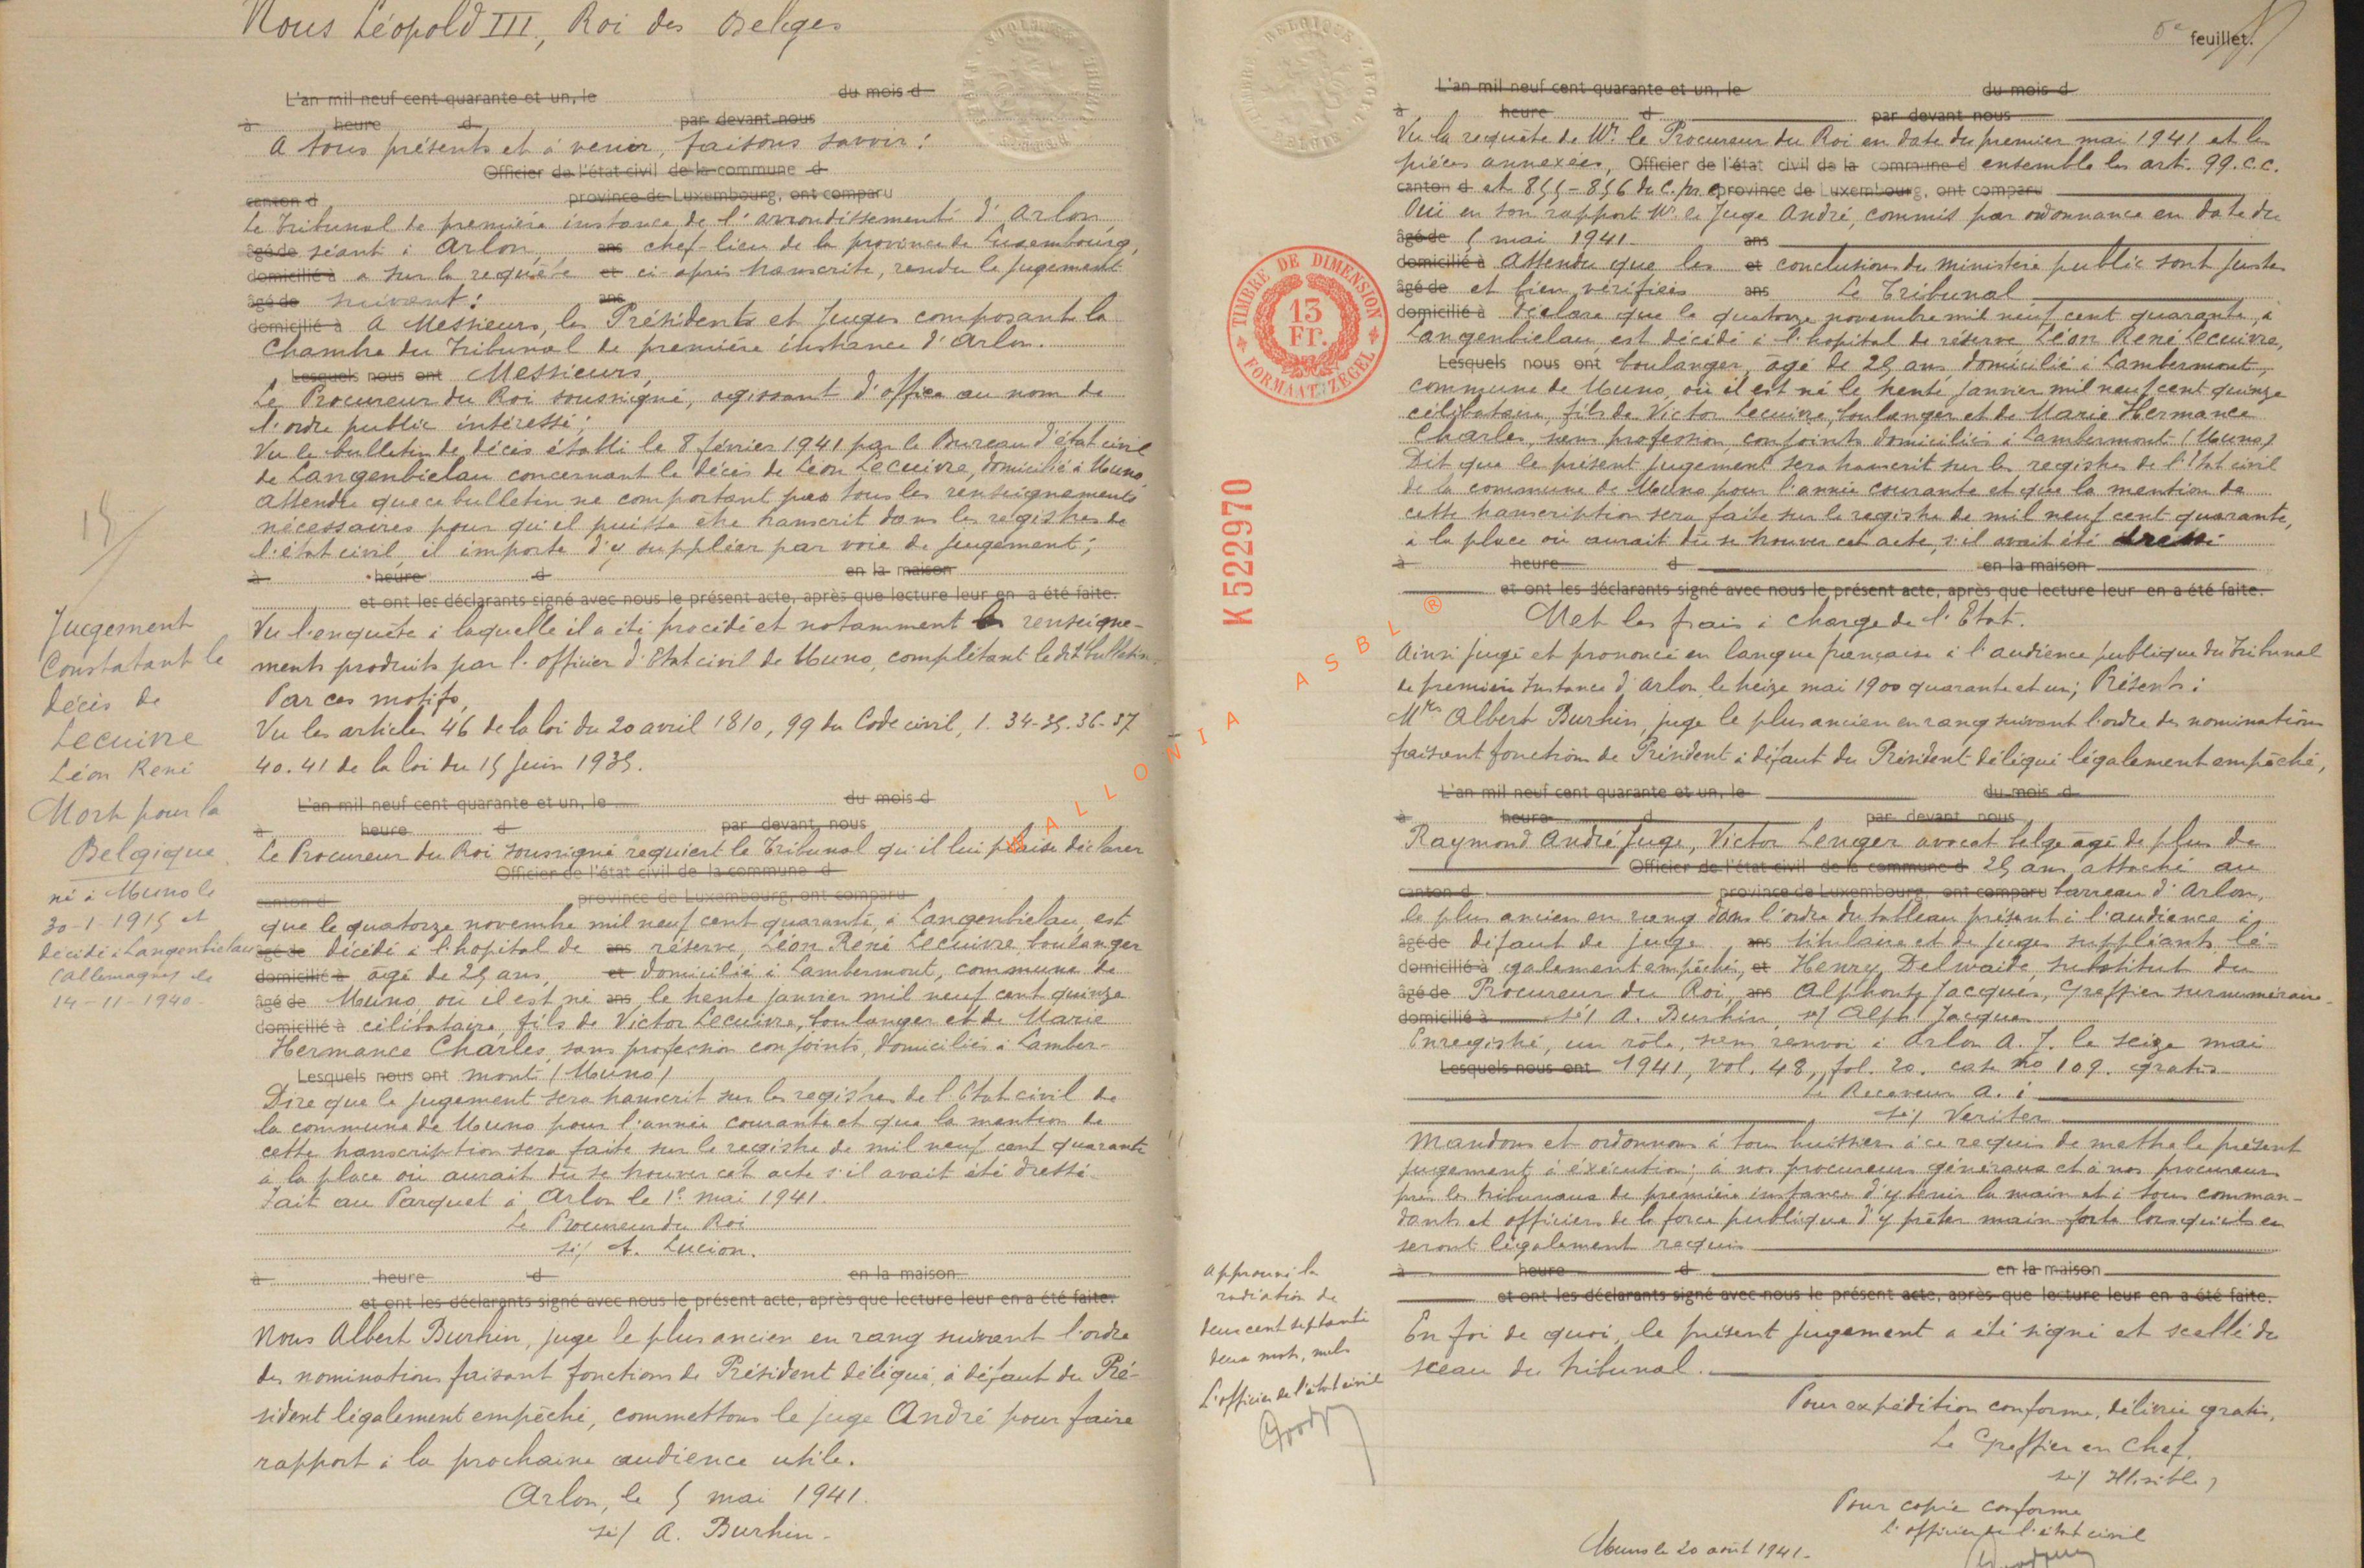 Nous Léopold III, Roi des Belges
L'an mil neuf cent quarante et un, le du mois d
à heure d par devant nous
A tous présents et à venir, faisons savoir :
Officier de l'état civil de la commune d
canton d province de Luxembourg, ont comparu
Le Tribunal de première instance de l'arrondissement d'Arlon,
âgé de séant à Arlon, ans chef-lieu de la province de Luxembourg,
domicilié à a sur la requête et ci-après transcrite, rendu le jugement
âgé de suivant : ans
domicilié à A Messieurs, les Présidents et Juges composant la
Chambre du Tribunal de première instance d'Arlon.
Lesquels nous ont Messieurs,
Le Procureur du Roi soussigné, agissant d'office au nom de
l'ordre public intéressé ;
Vu le bulletin de décès établi le 8 février 1941 par le Bureau d'état civil
de Langenbielau concernant le décès de Léon Lecuivre, domicilié à Muno,
attendu que ce bulletin ne comportant pas tous les renseignements
nécessaires pour qu'il puisse être transcrit dans les registres de
l'état civil, il importe d'y suppléer par voie de jugement ;
à heure d en la maison
et ont les déclarants signé avec nous le présent acte, après que lecture leur en a été faite.
Vu l'enquête à laquelle il a été procédé et notamment les renseigne-
ments produits par l'officier d'Etat civil de Muno, complétant le dit bulletin.
Par ces motifs,
Vu les articles 46 de la loi du 20 avril 1810, 99 du Code civil, 1. 34-35-36-37
40. 41 de la loi du 15 juin 1935.
L'an mil neuf cent quarante et un, le du mois d
à heure d par devant nous
Le Procureur du Roi soussigné requiert le Tribunal qu'il lui plaise déclarer
Officier de l'état civil de la commune d
canton d province de Luxembourg, ont comparu
que le quatorze novembre mil neuf cent quarante, à Langenbielau, est
âgé de décédé à l'hopital de ans réserve, Léon René Lecuivre, boulanger
domicilié à âgé de 25 ans, et domicilié à Lambermont, commune de
âgé de Muno où il est né ans le trente janvier mil neuf cent quinze
domicilié à célibataire, fils de Victor Lecuivre, boulanger et de Marie
Hermance Charles, sans profession conjoints, domiciliés à Lamber-
Lesquels nous ont mont (Muno)
Dire que le jugement sera transcrit sur les registres de l'Etat civil de
la commune de Muno pour l'année courante et que la mention de
cette transcription sera faite sur le registre de mil neuf cent quarante
à la place où aurait dû se trouver cet acte s'il avait été dressé.
Fait au Parquet à Arlon le 1e mai 1941.
Le Procureur du Roi
sé/ A. Lucion.
à heure d en la maison
et ont les déclarants signé avec nous le présent acte, après que lecture leur en a été faite.
Nous Albert Burhin, juge le plus ancien en rang suivant l'ordre
des nominations faisant fonctions de Président délégué, à défaut du Pré-
sident légalement empêché, commettons le juge André pour faire
rapport à la prochaine audience utile.
Arlon, le 5 mai 1941.
sé/ A. Burhin.
15
Jugement
Constatant le
décès de
Lecuivre
Léon René
Mort pour la
Belgique
né à Muno le
30-1-1915 et
décédé à Langenbielau
(Allemagne) le
14-11-1940.
WALLONIA ASBL ®
BELGIQUE
BELGIE
5e feuillet.
L'an mil neuf cent quarante et un, le du mois d
à heure d par devant nous
Vu la requête de Mr. le Procureur du Roi en date du premier mai 1941 et les
pièces annexées, Officier de l'état civil de la commune d ensemble les art. 99. C.C.
canton d et 855-856 du C. pr. c province de Luxembourg, ont comparu
Ouï en son rapport Mr. le Juge André, commis par ordonnance en date du
âgé de 5 mai 1941. ans
domicilié à Attendu que les et conclusions du ministère public sont justes
âgé de et bien vérifiées ans Le Tribunal
domicilié à Déclare que le quatorze novembre mil neuf cent quarante, à
Langenbielau, est décédé à l'hopital de réserve Léon René Lecuivre,
Lesquels nous ont boulanger, âgé de 25 ans domicilié à Lambermont,
commune de Muno, où il est né le trente janvier mil neuf cent quinze
célibataire, fils de Victor Lecuivre, boulanger et de Marie Hermance
Charles, sans profession, conjoints domiciliés à Lambermont (Muno)
Dit que le présent jugement sera transcrit sur les registres de l'Etat civil
de la commune de Muno pour l'année courante et que la mention de
cette transcription sera faite sur le registre de mil neuf cent quarante,
à la place où aurait dû se trouver cet acte, s'il avait été dressé.
à heure d en la maison
et ont les déclarants signé avec nous le présent acte, après que lecture leur en a été faite.
Met les frais à charge de l'Etat.
Ainsi jugé et prononcé en langue française à l'audience publique du Tribunal
de première Instance d'Arlon, le treize mai 1900 quarante et un ; Présents :
Mrs Albert Burhin, juge le plus ancien en rang suivant l'ordre des nominations
faisant fonctions de Président à défaut du Président délégué légalement empêché,
L'an mil neuf cent quarante et un, le du mois d
à heure d par devant nous
Raymond André Juge, Victor Lenger avocat belge âgé de plus de
Officier de l'état civil de la commune d 25 ans attaché au
canton d province de Luxembourg, ont comparu barreau d'Arlon,
le plus ancien en rang dans l'ordre du tableau présent à l'audience à
âgé de défaut de juge ans titulaire et de juges suppléants lé-
domicilié à galement empêchés, et Henry Delwaide, substitut du
âgé de Procureur du Roi, ans Alphonse Jacques, Greffier surnuméraire.
domicilié à sé/ A. Burhin, sé/ Alph. Jacques
Enregistré, un rôle, sans renvoi à Arlon A. J. le seize mai
Lesquels nous ont 1941, vol. 48, fol. 20. case no 109. gratis
Le Receveur a. i
sé/ Veriter
Mandons et ordonnons à tous huissiers à ce requis de mettre le présent
jugement à exécution ; à nos procureurs généraux et à nos procureurs
près les tribunaux de première instance d'y tenir la main et à tous comman-
dants et officiers de la force publique d'y prêter main-forte lorsqu'ils en
seront légalement requis
à heure d en la maison
et ont les déclarants signé avec nous le présent acte, après que lecture leur en a été faite.
En foi de quoi, le présent jugement a été signé et scellé du
sceau du tribunal.
Pour expédition conforme, délivrée gratis,
Le Greffier en Chef,
sé/ Illisible)
Pour copie conforme
l'officier de l'état civil
Muno le 20 août 1941.
TIMBRE DE DIMENSION
13
Fr.
FORMAATZEGEL
K 522970
Approuvé la
radiation de
deux cent septante
deux mots, nuls
L'officier de l'état civil